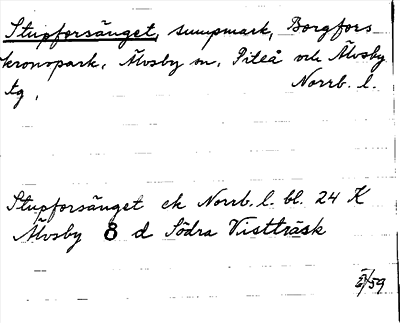 Stupforsänget, sumpmark, Borgfors
kronopark, Älvsby sn, Piteå och Älvsby
tg, Norrb. l.
Stupforsänget ek Norrb. l. bl. 24 K
Älvsby 8 d Södra Vistträsk
/59